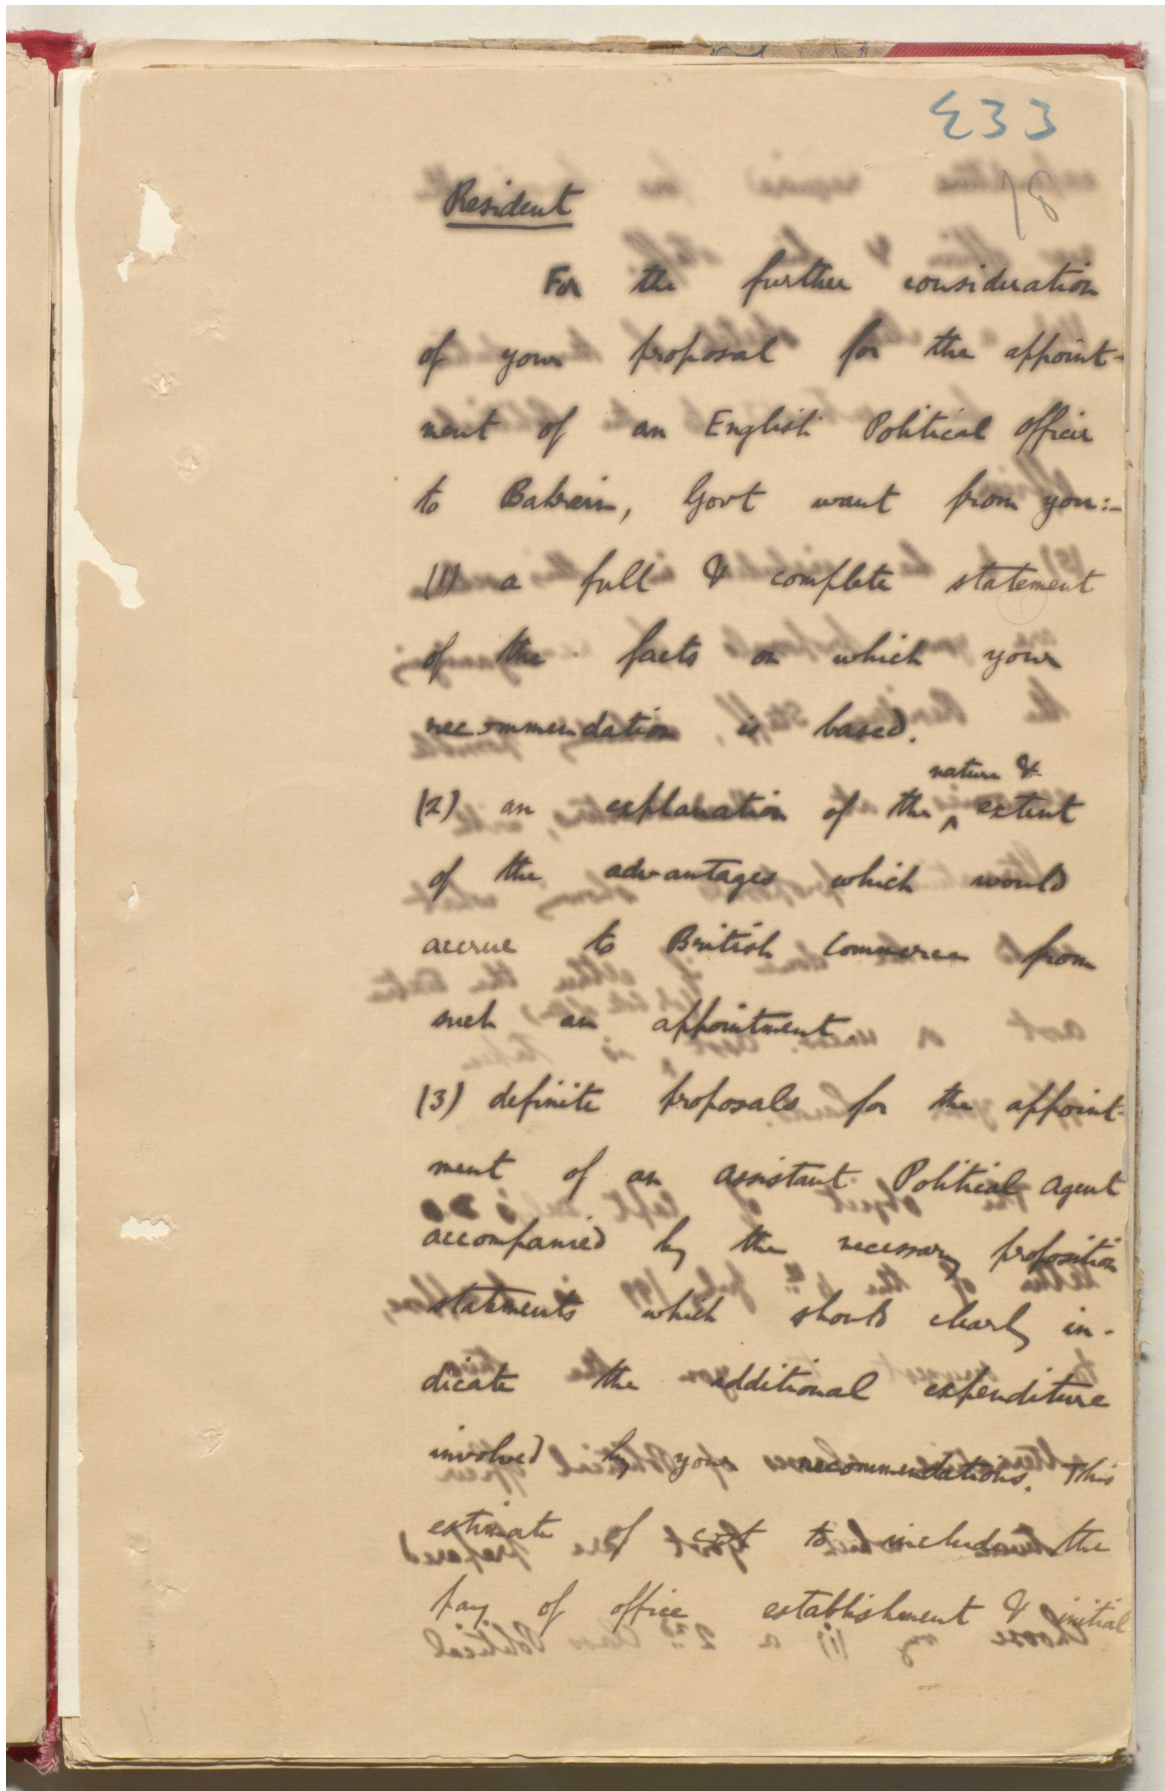 433
18
Resident
For the further consideration
of your proposal for the appoint-
ment of an English Political Officer
to Bahrein, Govt want from you:-
(1) a full & complete statement
of the facts on which your
recommendation is based.
nature &
(2) an explanation of the ^ extent
of the advantages which would
accrue to British Commerce from
such an appointment.
(3) definite proposals for the appoint-
ment of an Assistant Political Agent
accompanied by the necessary proposition
statements which should clearly in-
dicate the additional expenditure
involved by your recommendations. This
estimate of cost to include the
pay of office establishment & initial